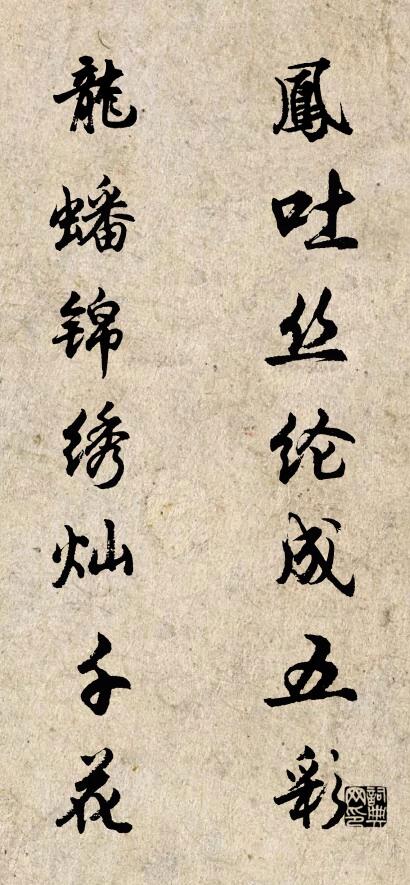 鳳吐丝纶成五彩
龍蟠锦绣灿千花
詞典网印